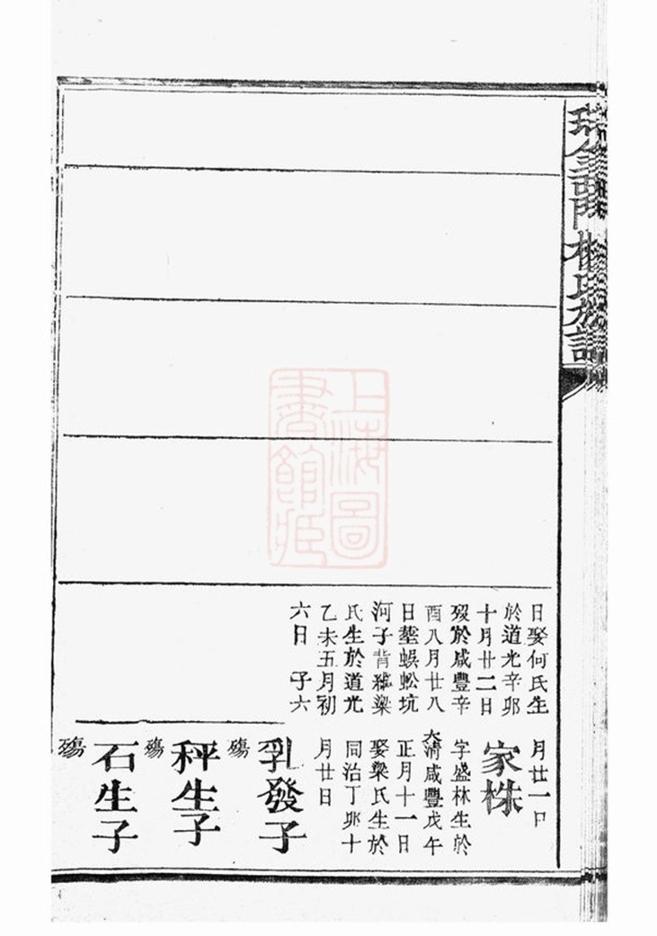 日娶何氏生
於道光辛卯
十月廿二日
歿於咸豐辛
酉八月廿八
日塟蜈蚣坑
河子背
氏生於道光
乙未五月初
六日 子六
月廿一日
家株
字盛林生於
大清咸豐戊午
正月十一日
娶梁氏生於
同治丁卯十
月廿日
乳發子
殤
秤生子
殤
石生子
殤
上海圖
書館藏